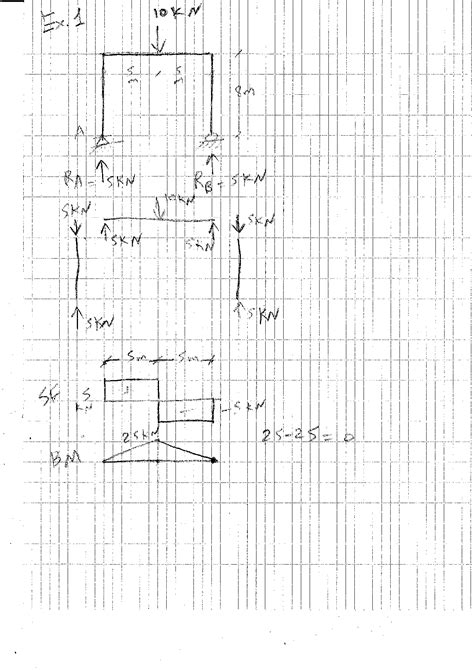 Ex.1
10KN
5 m , 5 m
8m
A
RA= 5KN
RB= 5KN
5KN
10KN
5KN
5KN
5KN
5KN
5KN
5m 5m
SF 5 KN
+
-5KN
25KN
25-25=0
BM